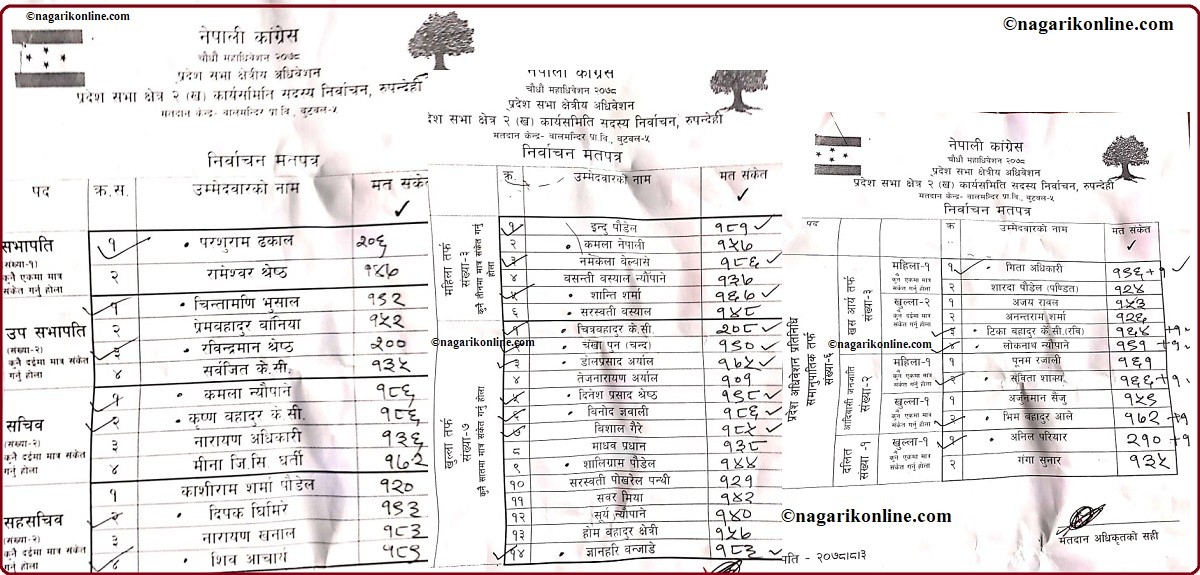 ©nagarikonline.com
नेपाली कांग्रेस
चौधौं महाधिवेशन २०७८
प्रदेश सभा क्षेत्रीय अधिवेशन
प्रदेश सभा क्षेत्र २ (ख) कार्यसमिति सदस्य निर्वाचन, रुपन्देही
मतदान केन्द्र- बालमन्दिर प्रा.वि., बुटवल-५
निर्वाचन मतपत्र
पद क्र.स. उम्मेदवारको नाम मत संकेत
✓
सभापति
(संख्या-१)
कुनै एकमा मात्र
संकेत गर्नु होला
१ परशुराम ढकाल २०६
२ रामेश्वर श्रेष्ठ
उप सभापति
(संख्या-२)
कुनै दुईमा मात्र संकेत
गर्नु होला
१ चिन्तामणि भुसाल १९२
२ प्रेमबहादुर बानिया १५२
३ रविन्द्रमान श्रेष्ठ २००
४ सर्वजित के.सी. १३५
सचिव
(संख्या-२)
कुनै दुईमा मात्र संकेत
गर्नु होला
१ कमला न्यौपाने १८६
२ कृष्ण बहादुर के.सी. १८६
३ नारायण अधिकारी १३६
४ मीना जि.सि. घर्ती १६२
सहसचिव
(संख्या-२)
कुनै दुईमा मात्र संकेत
गर्नु होला
१ काशीराम शर्मा पौडेल १२०
२ दिपक घिमिरे १९३
३ नारायण खनाल १८३
४ शिव आचार्य १८६
नेपाली कांग्रेस
चौधौं महाधिवेशन २०७८
प्रदेश सभा क्षेत्रीय अधिवेशन
प्रदेश सभा क्षेत्र २ (ख) कार्यसमिति सदस्य निर्वाचन, रुपन्देही
मतदान केन्द्र- बालमन्दिर प्रा.वि., बुटवल-५
निर्वाचन मतपत्र
क्र. उम्मेदवारको नाम मत संकेत
✓
महिला तर्फ
संख्या-३
कुनै तीनमा मात्र संकेत गर्नु
१ इन्दु पौडेल १८१ ✓
२ कमला नेपाली
३ नमकला बेल्वासे १८६ ✓
४ वसन्ती वस्याल न्यौपाने
५ शान्ति शर्मा ✓
६ सरस्वती वस्याल १४८
©nagarikonline.com
खुल्ला तर्फ
संख्या-७
कुनै सातमा मात्र संकेत गर्नु होला
१ चित्रबहादुर के.सी. २०८ ✓
२ चंखा पुन (चन्द) १९० ✓
३ डोलप्रसाद अर्याल ✓
४ तेजनारायण अर्याल १०१
५ दिनेश प्रसाद श्रेष्ठ १९८ ✓
६ विनोद ज्ञवाली १८६ ✓
७ विशाल गैरे ✓
८ माधव प्रधान १३८
९ शालिग्राम पौडेल १४४
१० सरस्वती पोखरेल पन्थी १२१
११ सवर मिया १४२
१२ सूर्य न्यौपाने १४०
१३ होम बहादुर क्षेत्री
१४ ज्ञानहरि वन्जाडे १८३ ✓
©nagarikonline.com
©nagarikonline.com
नेपाली कांग्रेस
चौधौं महाधिवेशन २०७८
प्रदेश सभा क्षेत्रीय अधिवेशन
प्रदेश सभा क्षेत्र २ (ख) कार्यसमिति सदस्य निर्वाचन, रुपन्देही
मतदान केन्द्र- बालमन्दिर प्रा.वि., बुटवल-५
निर्वाचन मतपत्र
पद क्र उम्मेदवारको नाम मत संकेत
✓
प्रदेश अधिवेशन प्रतिनिधि
समानुपातिक तर्फ
संख्या-६
खस आर्य तर्फ
संख्या-३
महिला-१
कुनै एकमा मात्र
संकेत गर्नु होला
१ गिता अधिकारी १९६+१
२ शारदा पौडेल (पण्डित) १२४
खुल्ला-२
१ अजय रावल १५३
२ अनन्तराम शर्मा १२६
३ टिका बहादुर के.सी.(रवि) +१
४ लोकनाथ न्यौपाने +१
©nagarikonline.com
आदिवासी जनजाति
संख्या-२
महिला-१
कुनै एकमा मात्र
संकेत गर्नु होला
१ पूनम रजाली १६१
२ सविता शाक्य +१
खुल्ला-१
कुनै एकमा मात्र
संकेत गर्नु होला
१ अर्जुनमान सैजु
२ भिम बहादुर आले +१
दलित
संख्या -१
खुल्ला-१
कुनै एकमा मात्र
संकेत गर्नु होला
१ अनिल परियार २१० +१
२ गंगा सुनार १३५
©nagarikonline.com
मतदान अधिकृतको सही
पति - २०७८।८।१३